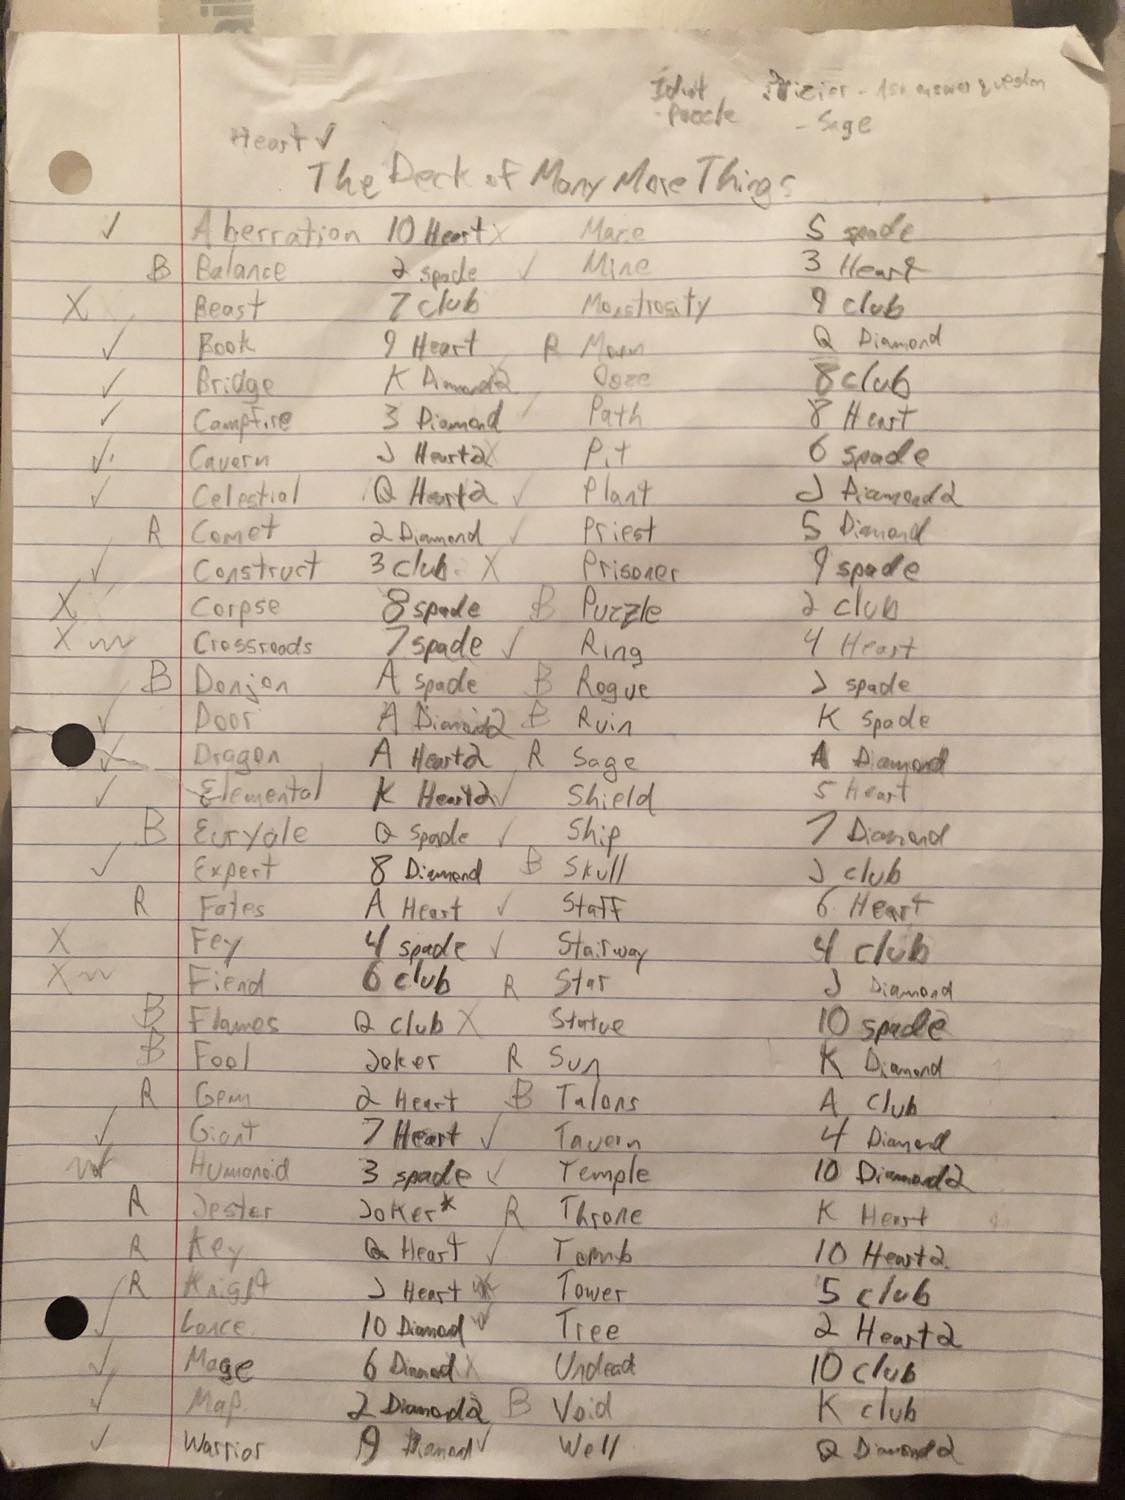 Idiot
- Puzzle
- Ask answer question
- Sage
Heart ✓
The Deck of Many More Things
✓ Aberration 10 Heart X Maze 5 spade
B Balance 2 spade ✓ Mine 3 Heart
X Beast 7 club Monstrosity 9 club
✓ Book 9 Heart R Moon Q Diamond
✓ Bridge K Diamond2 Ooze 8 club
✓ Campfire 3 Diamond ✓ Path 8 Heart
✓ Cavern J Heart2 X Pit 6 spade
✓ Celestial Q Heart2 ✓ Plant J Diamond2
R Comet 2 Diamond ✓ Priest 5 Diamond
✓ Construct 3 club X Prisoner 9 spade
X Corpse 8 spade B Puzzle 2 club
X Crossroads 7 spade ✓ Ring 4 Heart
B Donjon A spade B Rogue J spade
✓ Door A Diamond2 B Ruin K spade
✓ Dragon A Heart2 R Sage A Diamond
✓ Elemental K Heart2 ✓ Shield 5 Heart
B Euryale Q spade ✓ Ship 7 Diamond
✓ Expert 8 Diamond B Skull J club
R Fates A Heart ✓ Staff 6 Heart
X Fey 4 spade ✓ Stairway 4 club
X Fiend 6 club R Star J Diamond
B Flames Q club X Statue 10 spade
B Fool Joker R Sun K Diamond
R Gem 2 Heart B Talons A club
✓ Giant 7 Heart ✓ Tavern 4 Diamond
Humanoid 3 spade ✓ Temple 10 Diamond2
R Jester Joker* R Throne K Heart
R Key Q Heart ✓ Tomb 10 Heart2
R Knight J Heart Tower 5 club
✓ Lance 10 Diamond ✓ Tree 2 Heart2
✓ Mage 6 Diamond X Undead 10 club
✓ Map 2 Diamond2 B Void K club
✓ Warrior 9 Diamond ✓ Well Q Diamond2